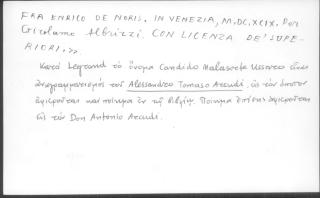 FRA ENRICO DE NORIS. IN VENEZIA, M.DC.XCIX. Per
Girolamo Albrizzi. CON LICENZA DE' SUPE-
RIORI.>>.
Κατά Legrand τό ὄνομα Candido Malasorte Ussaro εἶναι
ἀναγραμματισμός τοῦ Alessandro Tomaso Arcudi, εἰς τόν ὁποῖον
ἀφιεροῦται καί ποίημα ἐν τῷ βιβλίῳ. Ποίημα ἐπίσης ἀφιεροῦται
εἰς τόν Don Antonio Arcudi.